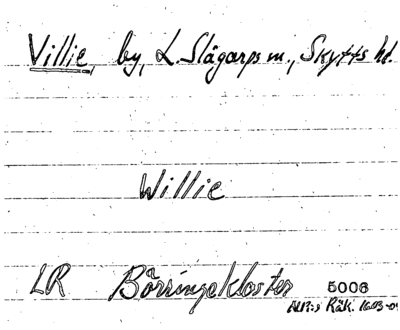 Villie, by, L. Slågarps sn., Skytts hd.
Willie
LR Börringekloster 5006
Räk. 1603-04